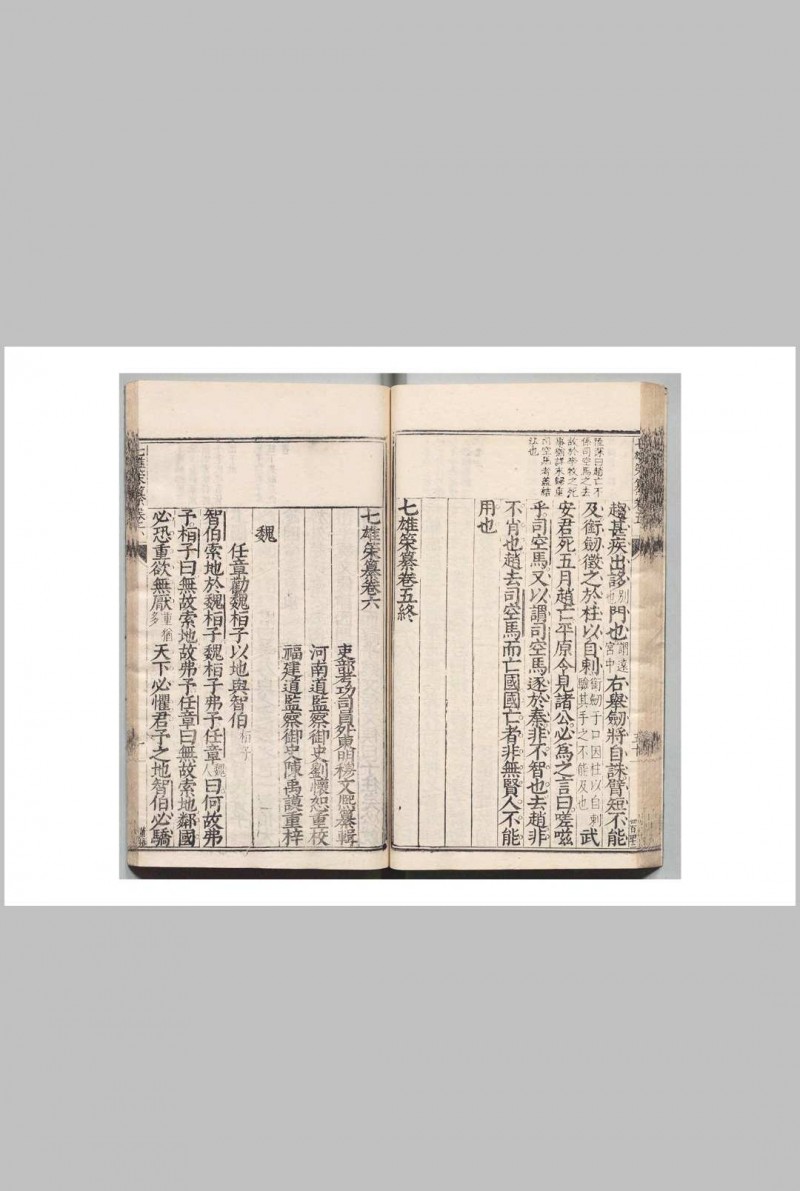 趨甚疾出諔別也門也謂遠宮中右舉劔將自誅臂短不能
及銜劔徵之於柱以自刺銜劔于口因柱以自刺驗其手之不能及也武
安君死五月趙亡平原令見諸公必為之言曰嗟嗞
乎司空馬又以謂司空馬逐於秦非不智也去趙非
不肖也趙去司空馬而亡國國亡者非無賢人不能
用也
七雄策纂卷五終
七雄策纂卷六
吏部考功司員外東明穆文熙纂輯
河南道監察御史劉懷恕重校
福建道監察御史陳禹謨重梓
魏
任章勸魏桓子以地與智伯
智伯索地於魏桓子魏桓子弗予任章魏人曰何故弗
予桓子曰無故索地故弗予任章曰無故索地鄰國
必恐重欲無厭重猶多天下必懼君予之地智伯必驕
七雄策纂卷六